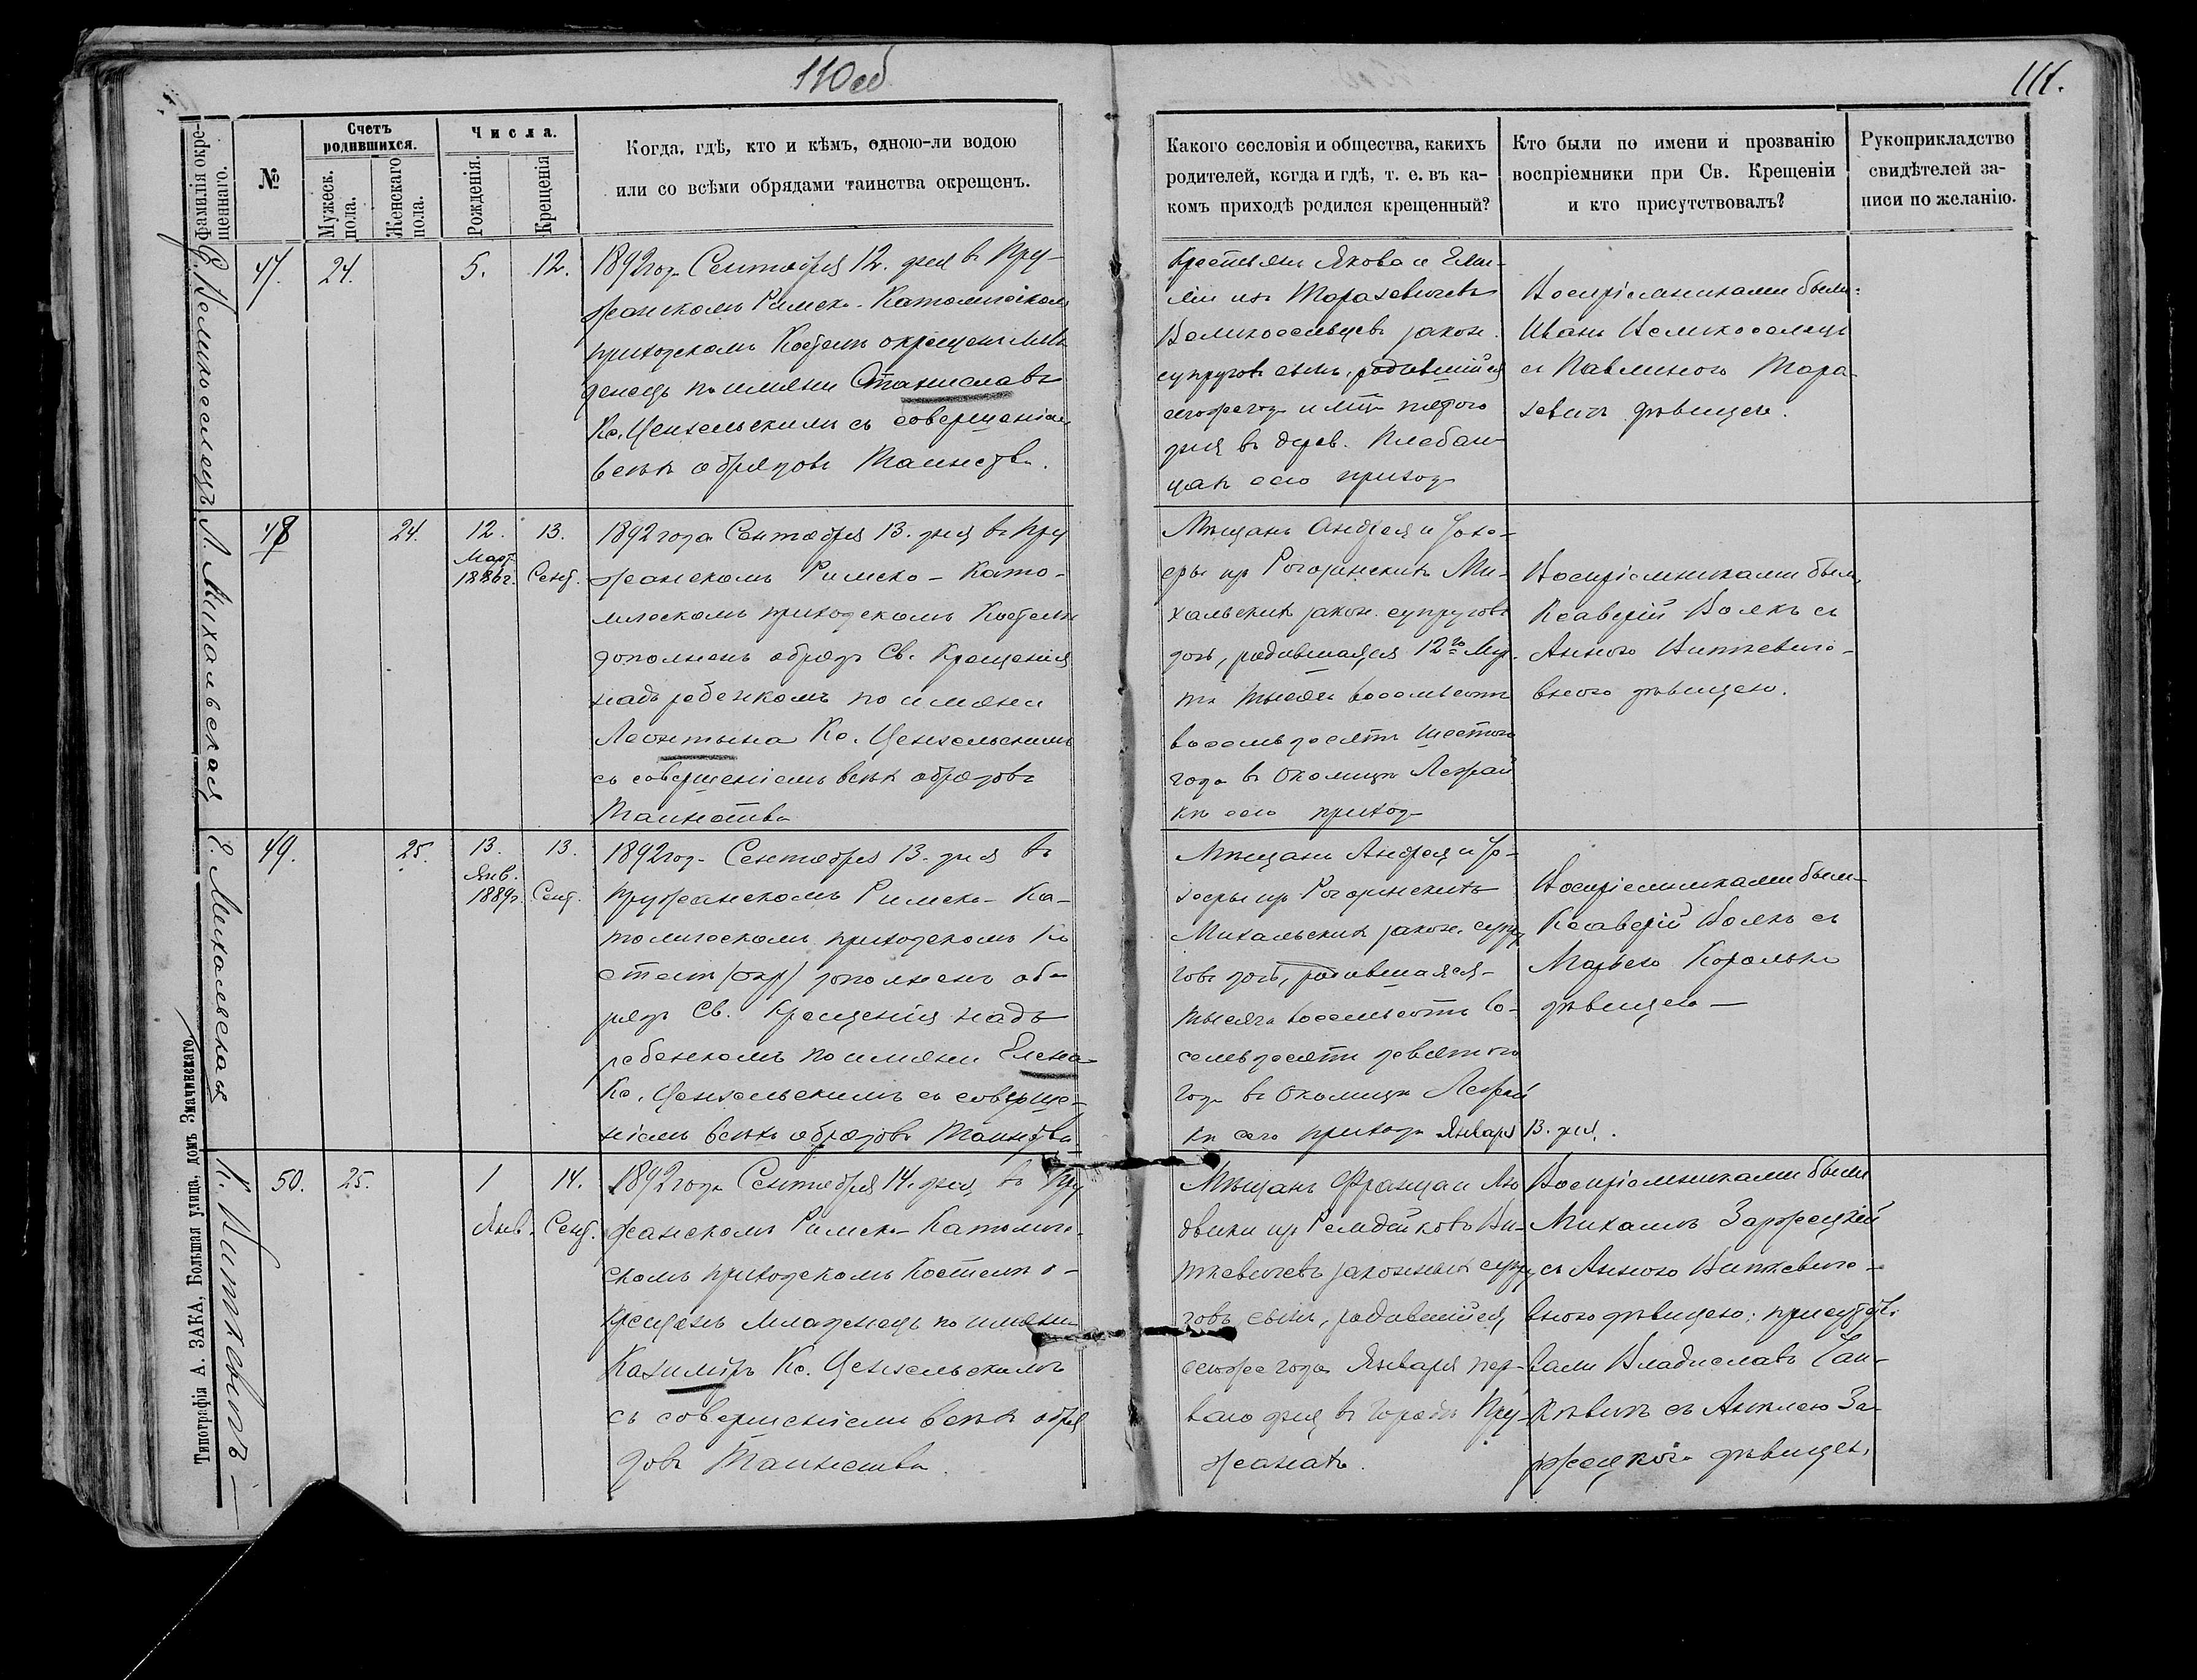 110 об
111.
Фамилія окре-
щеннаго.
№
Счетъ
родившихся.
Мужеск.
пола.
Женскаго
пола.
Числа.
Рожденія.
Крещенія
Когда, гдѣ, кто и кѣмъ, одною-ли водою
или со всѣми обрядами таинства окрещенъ.
Какого сословія и общества, какихъ
родителей, когда и гдѣ, т. е. въ ка-
комъ приходѣ родился крещенный?
Кто были по имени и прозванію
воспріемники при Св. Крещеніи
и кто присутствовалъ?
Рукоприкладство
свидѣтелей за-
писи по желанію.
С. Великоселецъ
47.
24.
5.
12.
1892 года Сентября 12. дня въ Пру-
жанскомъ Римско-Католическомъ
приходскомъ Костелѣ окрещенъ Мла
денецъ по имени Станиславъ
Кс. Ценхельскимъ съ совершеніемъ
всѣхъ обрядовъ Таинства.
Крестьянъ Якова и Эми-
ліи изъ Таразевичевъ
Великосельцевъ закон.
супруговъ сынъ, родившійся
сегоже года и м-ца пятого
дня въ дерев. Плебан-
цах сего прихода
Воспріемниками были:
Иванъ Великоселецъ
съ Павлиною Тара-
зевичъ дѣвицею.
Л. Михальская
48
24.
12.
Март.
1886 г.
13.
Сент.
1892 года Сентября 13. дня въ Пру
жанскомъ Римско-Като-
лическомъ приходскомъ Костелѣ
дополненъ обрядъ Св. Крещенія
надъ ребенкомъ по имени
Леонтына Кс. Ценхельскимъ
съ совершеніемъ всѣхъ обрядовъ
Таинства
Мѣщанъ Андрея и Юзе-
фы изъ Рогозинскихъ Ми-
хальскихъ закон. супруговъ
дочь, родившаяся 12го Мар-
та тысяча восемьсотъ
восемьдесятъ шестого
года въ Околицѣ Лежай
кѣ сего прихода
Воспріемниками были
Ксаверій Воякъ съ
Анною Виткевиче-
вною дѣвицею.
Е. Михальская
49.
25.
13.
Янв.
1889 г.
13.
Сент.
1892 года Сентября 13. дня въ
Пружанскомъ Римско-Ка-
толическомъ приходскомъ Ко
стелѣ (окр) дополненъ об-
рядъ Св. Крещенія надъ
ребенкомъ по имени Елена
Кс. Ценхельскимъ съ соверше-
ніемъ всѣхъ обрядовъ Таинства.
Мѣщанъ Андрея и Ю-
зефы изъ Рогозинскихъ
Михальскихъ закон. супру
говъ дочь, родившаяся
тысяча восемьсотъ во-
семьдесятъ девятого
года въ Околицѣ Лежай
кѣ сего прихода Января 13. дня.
Воспріемниками были
Ксаверій Воякъ съ
Марьею Королько
дѣвицею —
К. Виткевичъ —
50.
25.
1
Янв.
14.
Сент.
1892 года Сентября 14. дня въ Пру
жанскомъ Римско-Католиче-
скомъ приходскомъ Костелѣ о-
крещенъ младенецъ по имени
Казиміръ Кс. Ценхельскимъ
съ совершеніемъ всѣхъ обря
довъ Таинства.
Мѣщанъ Франца и Лю
двики изъ Ви-
ткевичевъ законныхъ супру
говъ сынъ, родившійся
сегоже года Января пер-
ваго дня въ городѣ Пру-
жанахъ.
Воспріемниками были
Михаилъ Заржецкій
съ Анною Виткевиче-
вною дѣвицею: присутство
вали Владиславъ
съ Аниелею За-
ржецкой дѣвицею.
Типографія А. ЗАКА, Большая улица, домъ Змачинскаго